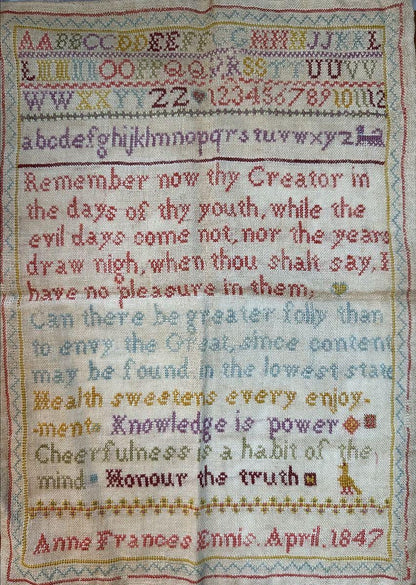 AABBCCDDEEFF G HHIIJJKKL
LMMNNOOPPQQRRSSTTUUVV
WWXXYYZZ 123456789101112
abcdefghijklmnopqrstuvwxyz
Remember now thy Creator in
the days of thy youth, while the
evil days come not, nor the years
draw nigh, when thou shalt say, I
have no pleasure in them;
Can there be greater folly than
to envy the Great, since content
may be found in the lowest state
Health sweetens every enjoy-
ment Knowledge is power
Cheerfulness is a habit of the
mind Honour the truth
Anne Frances Ennis. April. 1847